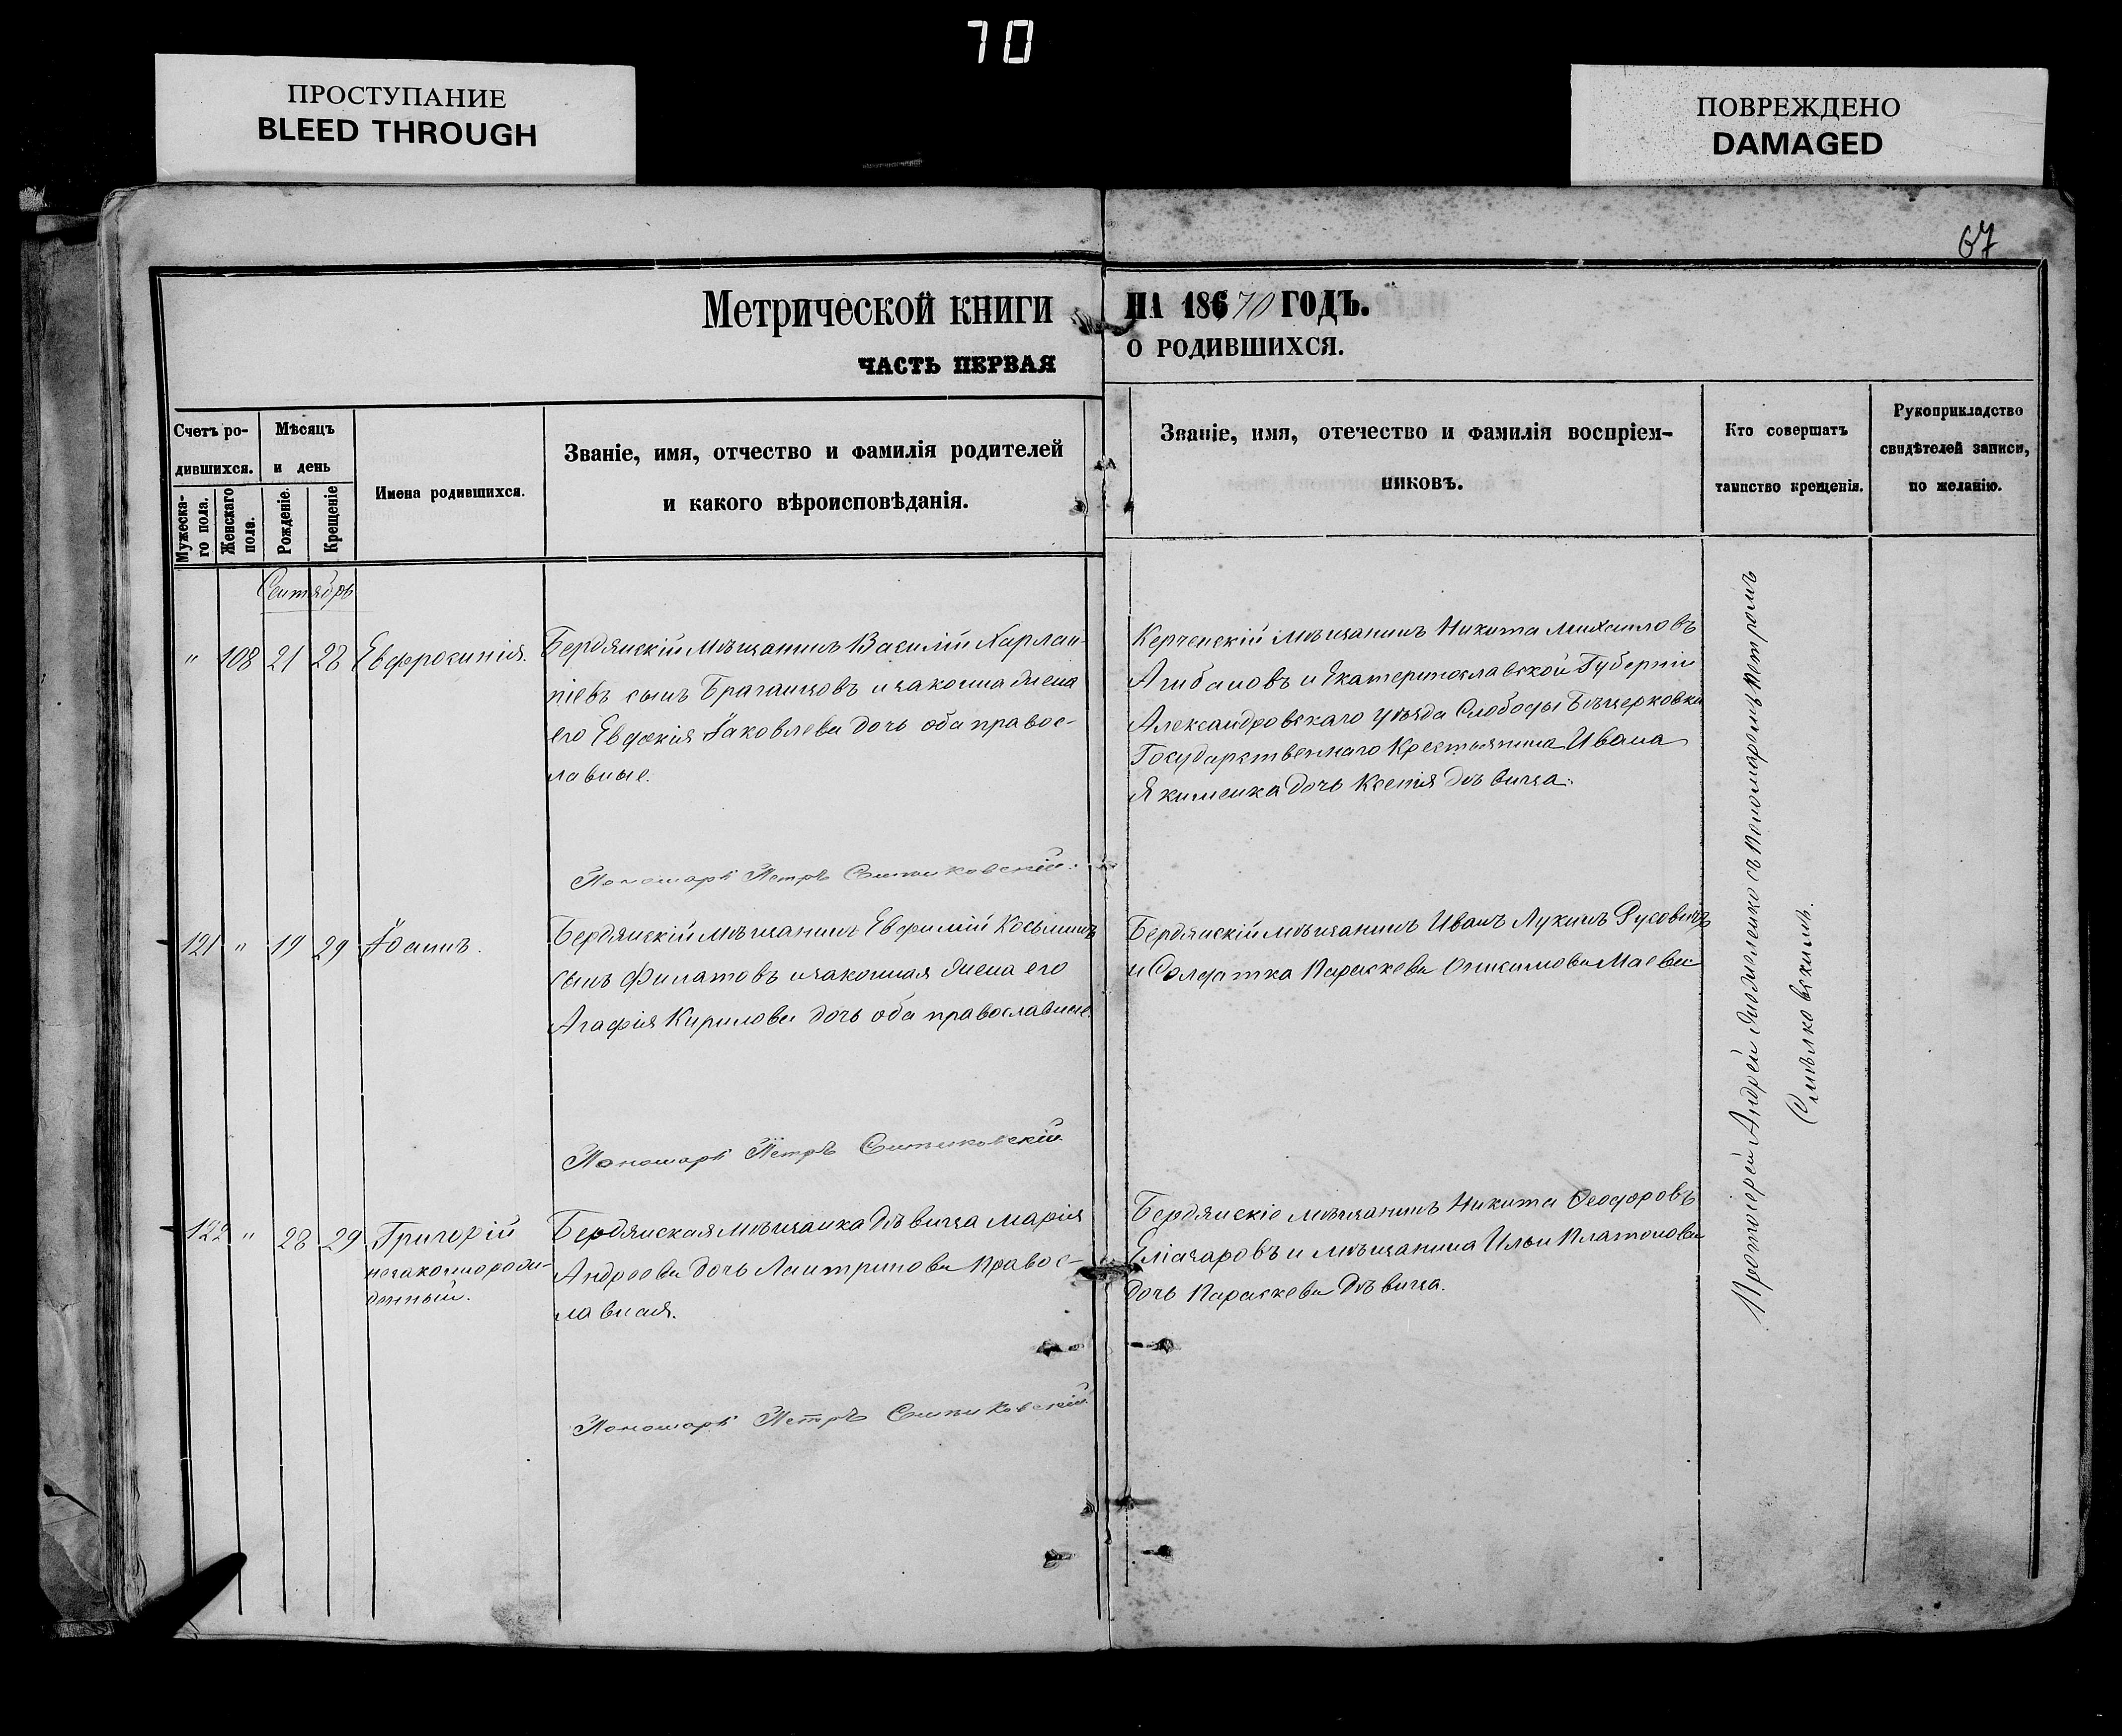 70
ПРОСТУПАНИЕ
BLEED THROUGH
ПОВРЕЖДЕНО
DAMAGED
67
Метрической книги на 18670 годъ.
ЧАСТЬ ПЕРВАЯ О РОДИВШИХСЯ.
Счетъ родившихся.
Мужеска-
го пола.
Женскаго
пола.
Мѣсяцъ
и день
Рожденіе.
Крещеніе
Имена родившихся.
Званіе, имя, отчество и фамилія родителей
и какого вѣроисповѣданія.
Званіе, имя, отечество и фамилія воспріем-
никовъ.
Кто совершатъ
таинство крещенія.
Рукоприкладство
свидѣтелей записи,
по желанію.
Сентябрь
" 108 21 28 Евфросинія.
Бердянскій мѣщанинъ Василій Харлам-
піевъ сынъ Браганцовъ и законна жена
его Евдокія Іаковлева дочь оба правос-
лавные.
Керченскій мѣщанинъ Никита Михаиловъ
и Екатеринославской Губерніи
Александровскаго уѣзда Слободы
Государственнаго Крестьянина Ивана
Якименка дочь Ксенія дѣвица.
Пономарь Петръ
121 " 19 29 Іоаннъ.
Бердянскій мѣщанинъ Евфимій Косьминъ
сынъ Филатовъ и законная жена его
Агафія Кирилова дочь оба православные.
Бердянскій мѣщанинъ Иванъ Лукинъ Русовичъ
и Солдатка Параскева Онисимова Маева
Пономарь Петръ
122 " 28 29 Григорій
незаконнорож-
денный.
Бердянская мѣщанка дѣвица Марія
Андреева дочь правос-
лавная.
Бердянскіе мѣщанинъ Никита Феодоровъ
и мѣщанина Ильи Платонова
дочь Параскева дѣвица.
Пономарь Петръ
Протоіерей Андрей съ Пономаремъ Петромъ